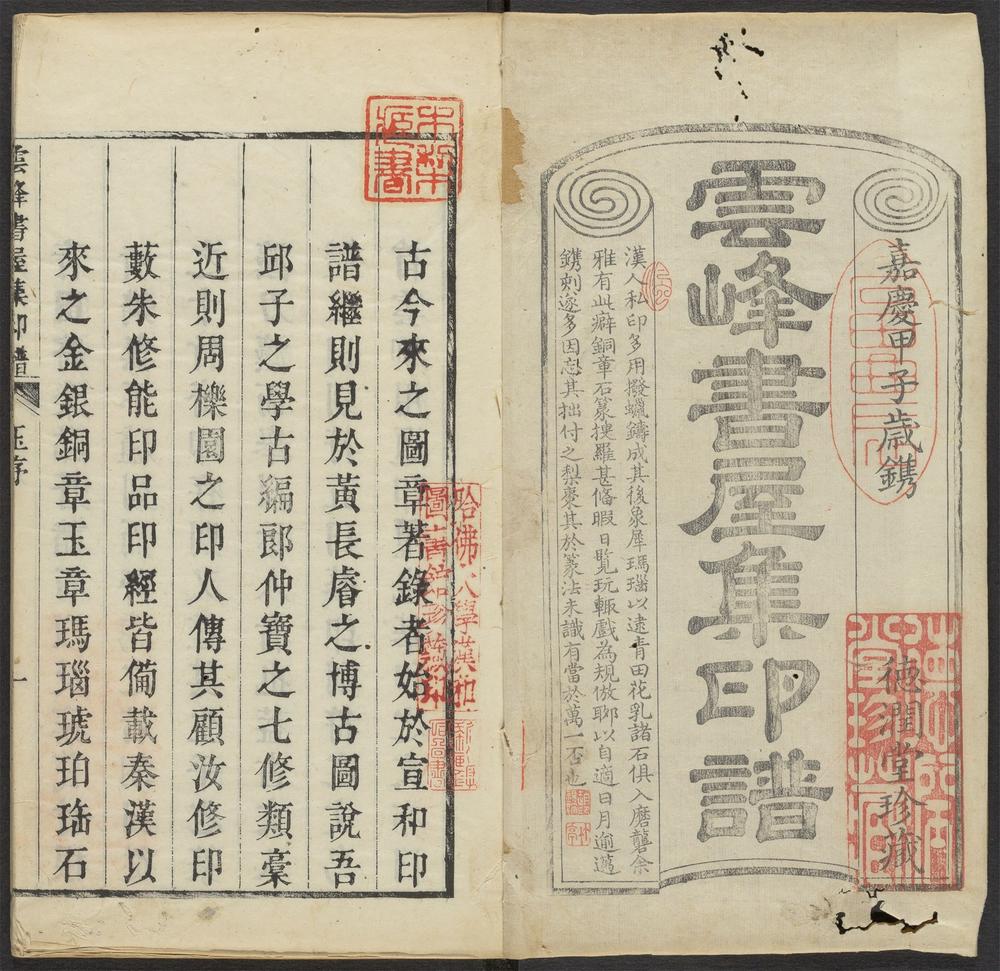 嘉慶甲子歲鐫
德潤堂珍藏
雲峰書屋集印譜
漢人私印多用撥蠟鑄成其後象犀瑪瑙以逮青田花乳諸石俱入磨礱余
雅有此癖銅章石篆搜羅甚俻暇日覽玩輒戲為規倣聊以自適日月逾邁
鐫刻遂多因忘其拙付之梨棗其於篆法未識有當於萬一否也
古今來之圖章著錄者始於宣和印
譜繼則見於黃長睿之博古圖說吾
邱子之學古編郎仲寶之七修類稾
近則周櫟園之印人傳其顧汝修印
藪朱修能印品印經皆備載秦漢以
來之金銀銅章玉章瑪瑙琥珀珤石
雲峰書屋集印譜
序
一
哈佛大學漢和
圖書館珍藏印